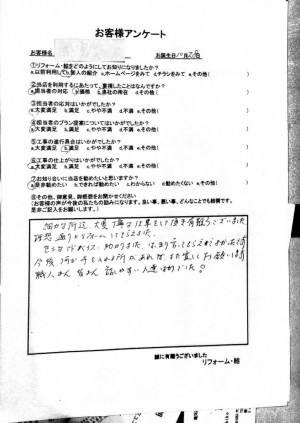 お客様アンケート
お客様名
お誕生日
①リフォーム・結をどのようにしてお知りになりましたか？
a.以前利用して b.知人の紹介 c.ホームページをみて d.チラシをみて e.その他( )
②当店を利用するにあたって、重視したことはなんですか？
a.担当者の対応 b.価格 c.貴社の所在 d.その他( )
③担当者の応対はいかがでしたか？
a.大変満足 b.満足 c.やや不満 d.不満 e.その他( )
④担当者のプラン提案についてはいかがでしたか？
a.大変満足 b.満足 c.やや不満 d.不満 e.その他( )
⑤工事の進行具合はいかがでしたか？
a.大変満足 b.満足 c.やや不満 d.不満 e.その他( )
⑥工事の仕上がりはいかがでしたか？
a.大変満足 b.満足 c.やや不満 d.不満 e.その他( )
⑦お知り合いに当店を勧めたいと思いますか？
a.是非勧めたい b.できれば勧めたい c.わからない d.勧めたくない e.その他( )
⑧その他、御意見、御感想をお聞かせください
(お客様の声が今後の私たちの励みになります。良い事、悪い事、どんなことでも結構です。
是非ご記入をお願いします。)
細かな所迄、大変丁寧な仕事をして頂き有難うございました
理想通りにリフォームしてもらえました。
今後 何か手を入れる所があれば、また宜しくお願いします
職人さん 皆さん 話しやすい人達ばかりでした。
誠に有難うございました
リフォーム・結